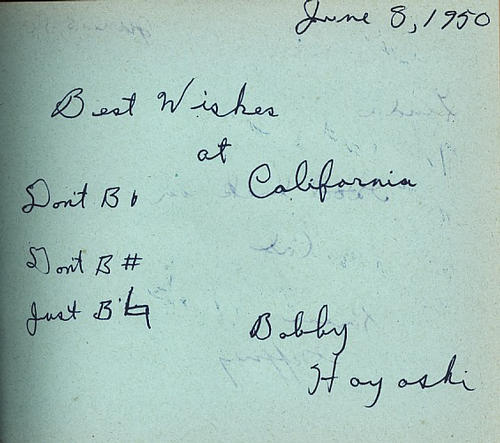 June 8, 1950
Best Wishes
at
California
Don't B ♭
Don't B #
Just B ♮
Bobby
Hayashi